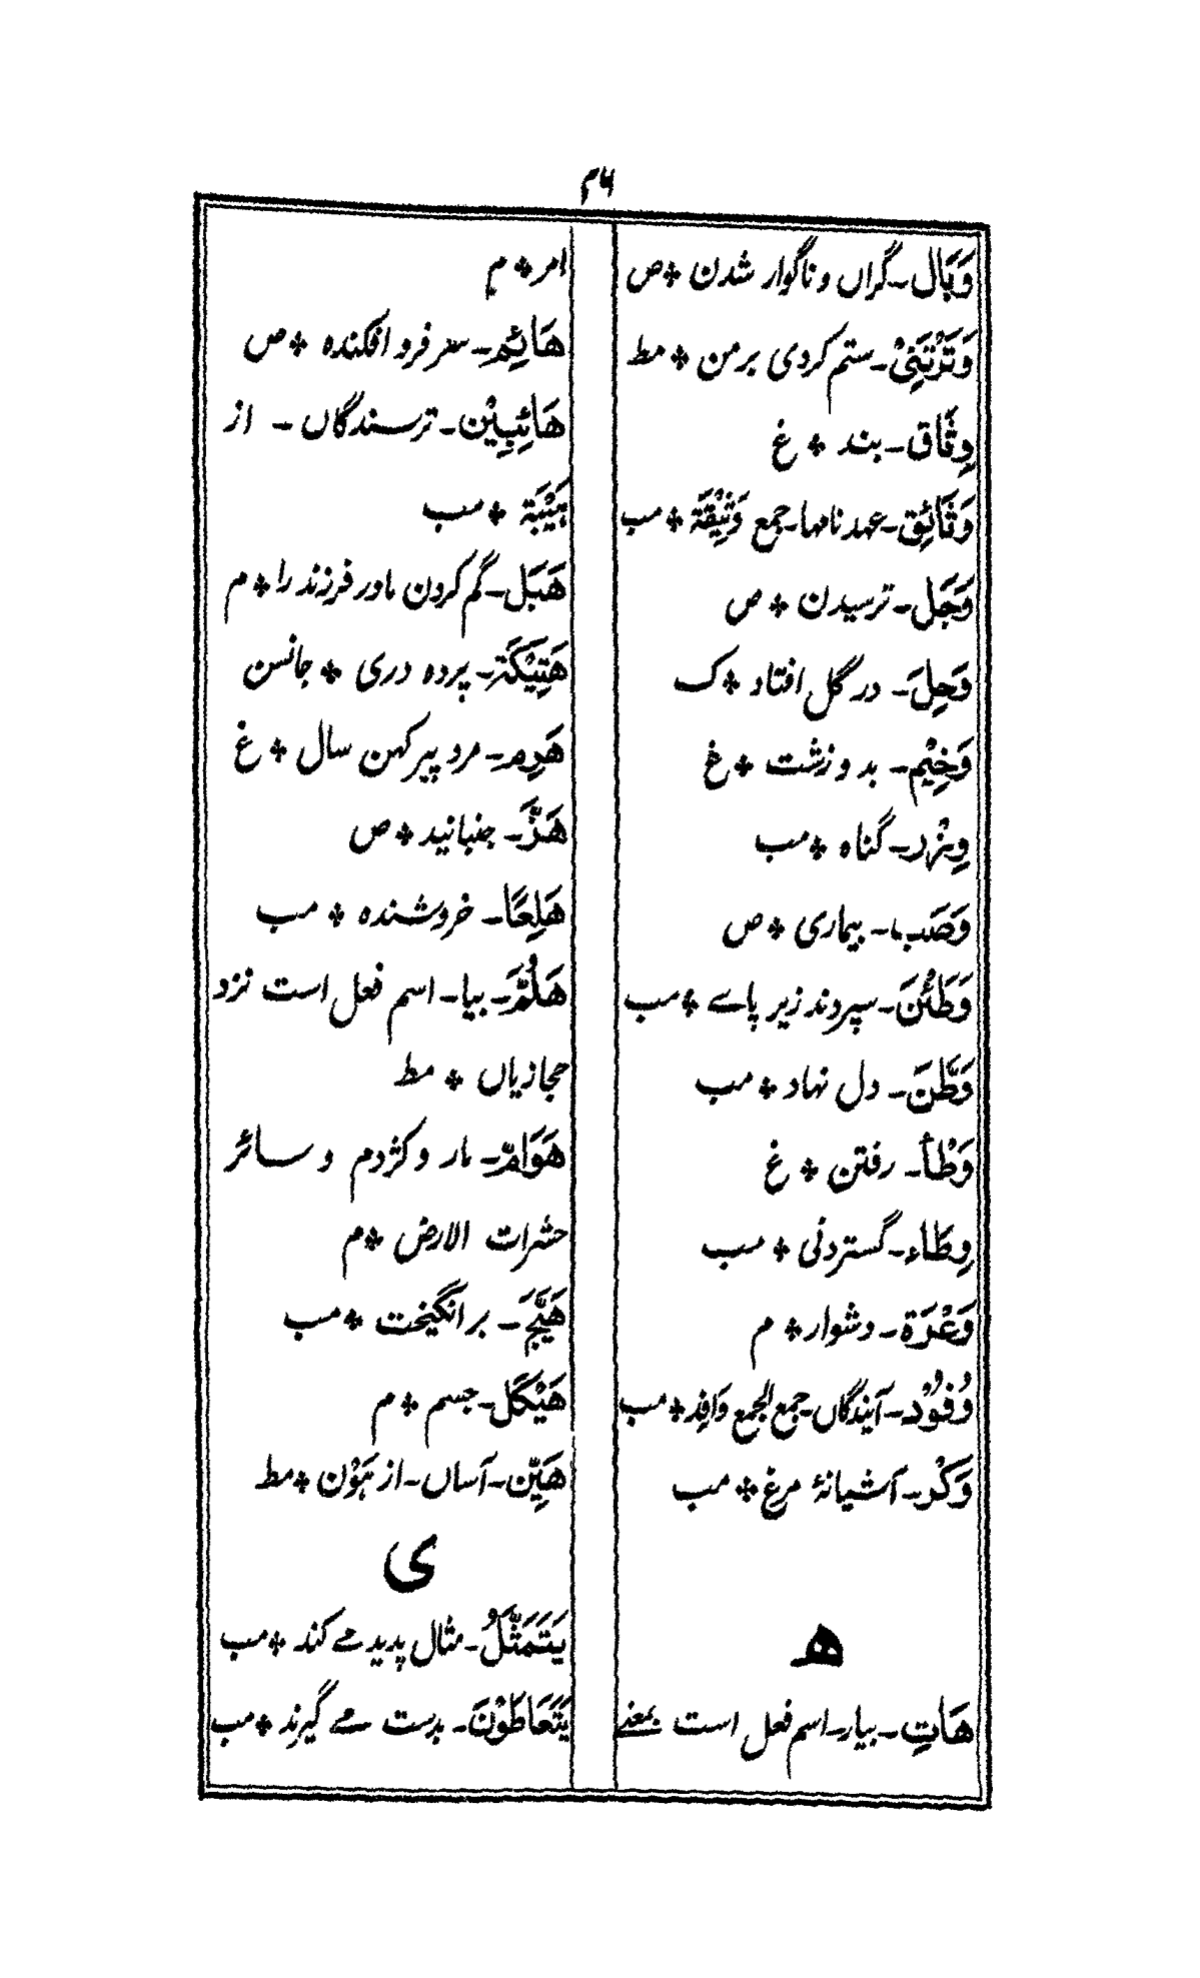 ۴۶
وَبَال۔گراں و ناگوار شدن ❖ ص
وَتَرْتَنِیْ۔ستم کردی بر من ❖ مط
وِثَاق۔بند ❖ غ
وَثَائِق۔عہد نامہا۔جمع وَثِیْقَة ❖ مب
وَجَل۔ترسیدن ❖ ص
وَحِلَ۔در گل افتاد ❖ ک
وَخِیْم۔بد و زشت ❖ غ
وِزْر۔گناہ ❖ مب
وَصَب۔بیماری ❖ ص
وَطَئْنَ۔سپردند زیر پاے ❖ مب
وَطَّنَ۔دل نہاد ❖ مب
وَطْأ۔رفتن ❖ غ
وِطَاء۔گستردنی ❖ مب
وَعْرَة۔دشوار ❖ م
وُفُوْد۔آیندگاں۔جمع الجمع وَافِد ❖ مب
وَکْر۔آشیانۂ مرغ ❖ مب
ھ
هَاتِ۔بیار۔اسم فعل است بمعنے
امر ❖ م
هَائِم۔سر فرو افکندہ ❖ ص
هَائِبِیْن۔ترسندگاں ۔ از
ہَیْبَة ❖ مب
هَبَل۔گم کردن مادر فرزند را ❖ م
هَتِیْکَة۔پردہ دری ❖ جانسن
هَرِم۔مرد پیر کہن سال ❖ غ
هَزَّ۔جنبانید ❖ ص
هَلِعًا۔خروشندہ ❖ مب
هَلُمَّ۔بیا۔اسم فعل است نزد
حجازیاں ❖ مط
هَوَامّ۔مار و کژدم و سائر
حشرات الارض ❖ م
هَیَّجَ۔بر انگیخت ❖ مب
هَیْکَل۔جسم ❖ م
هَیِّن۔آساں۔از ہَوْن ❖ مط
ی
یَتَمَثَّلُ۔مثال پدید مے کند ❖ مب
یَتَعَاطَوْنَ۔بدست مے گیرند ❖ مب